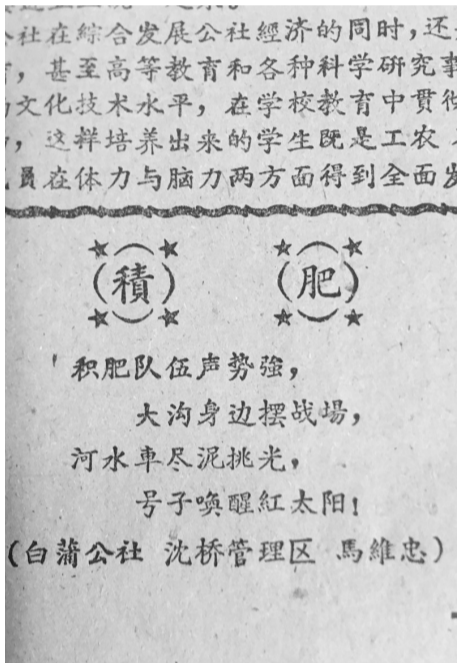 公社在綜合发展公社經济的同时，还
，甚至高等教育和各种科学研究事
文化技术水平，在学校教育中貫彻
，这样培养出来的学生既是工农
員在体力与脑力两方面得到全面发
積 肥
积肥队伍声势強，
大沟身边摆战場，
河水車尽泥挑光，
号子喚醒紅太阳！
（白蒲公社 沈桥管理区 馬維忠）